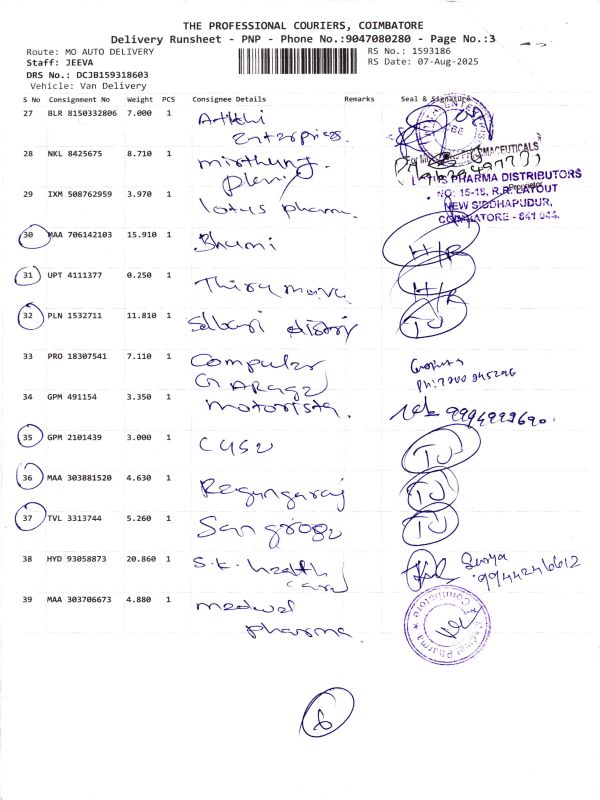 THE PROFESSIONAL COURIERS, COIMBATORE
Delivery Runsheet - PNP - Phone No.:9047080280 - Page No.:3
Route: MO AUTO DELIVERY RS No.: 1593186
Staff: JEEVA RS Date: 07-Aug-2025
DRS No.: DCJB159318603
Vehicle: Van Delivery
S No Consignment No Weight PCS Consignee Details Remarks Seal & Signature
27 BLR 8150332806 7.000 1
Enterprices.
28 NKL 8425675 8.710 1
PHARMACEUTICALS
Proprietor
29 IXM 508762959 3.970 1 lotus pharma.
PHARMA DISTRIBUTORS
NO: 15-18, R.R. LAYOUT
NEW SIDDHAPUDUR,
COIMBATORE - 641 044.
30 MAA 706142103 15.910 1 Bhumi H/R
31 UPT 4111377 0.250 1 H/R
32 PLN 1532711 11.810 1 TJ
33 PRO 18307541 7.110 1 Computer
Garage
34 GPM 491154 3.350 1 motorista.
35 GPM 2101439 3.000 1 TJ
36 MAA 303881520 4.630 1 TJ
37 TVL 3313744 5.260 1 TJ
38 HYD 93058873 20.860 1 S.K. health Surya
care 9944246612
39 MAA 303706673 4.880 1
pharma
6